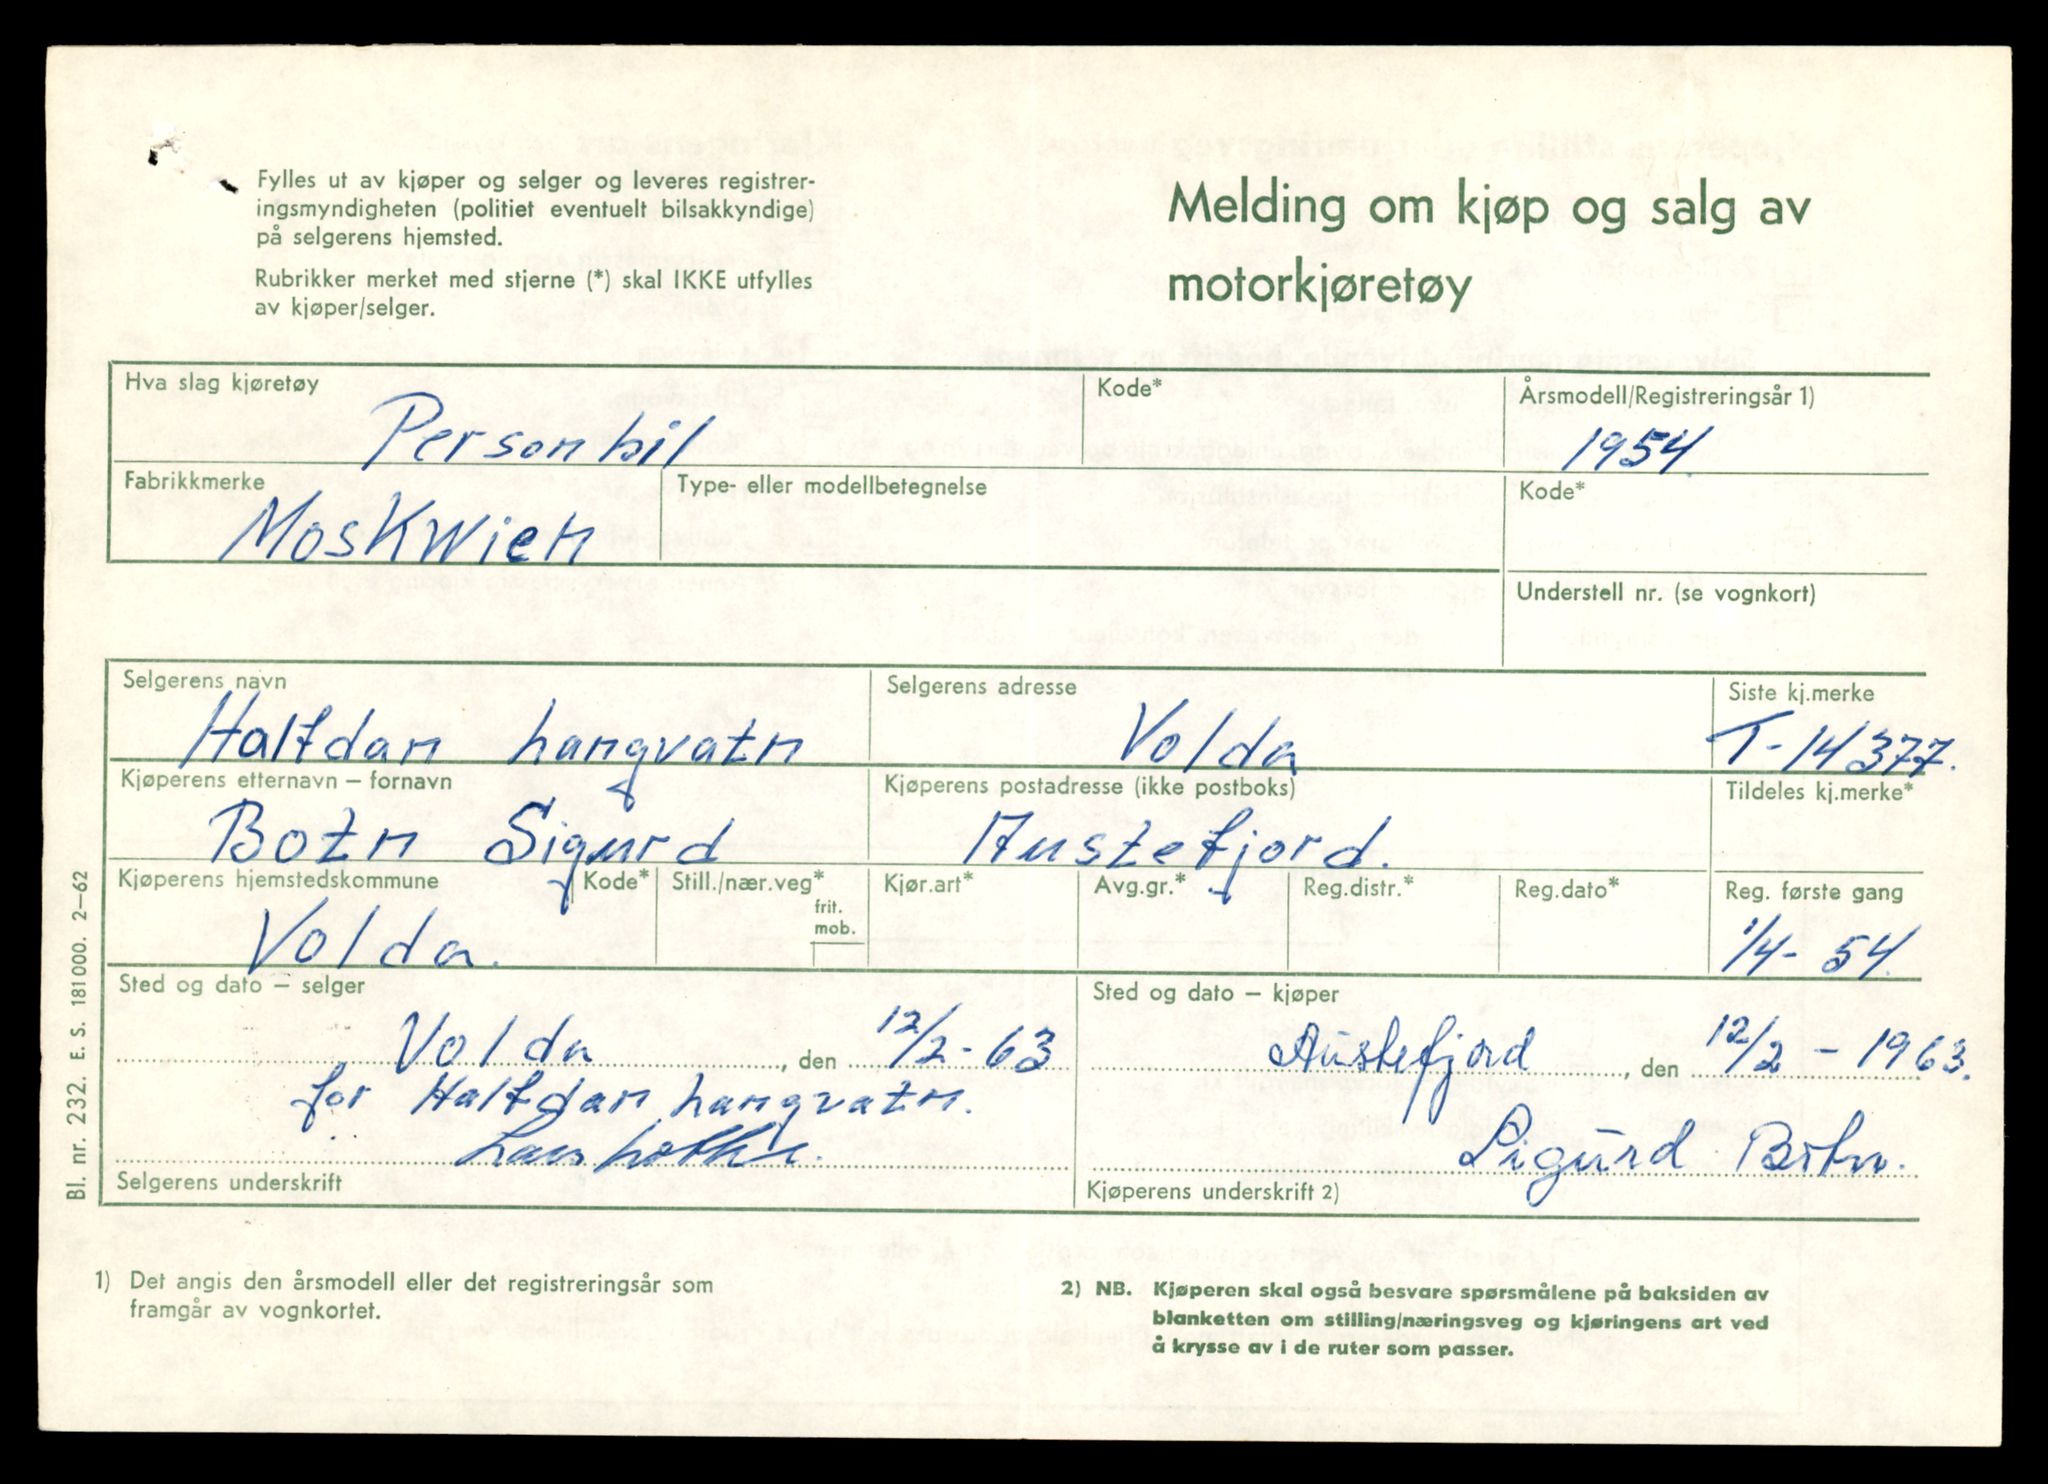 Fylles ut av kjøper og selger og leveres registrer-
ingsmyndigheten (politiet eventuelt bilsakkyndige)
på selgerens hjemsted.
Rubrikker merket med stjerne (*) skal IKKE utfylles
av kjøper/selger.
Melding om kjøp og salg av
motorkjøretøy
Hva slag kjøretøy
Personbil
Kode*
Årsmodell/Registreringsår 1)
1954.
Fabrikkmerke
Moskwich
Type- eller modellbetegnelse
Kode*
Understell nr. (se vognkort)
Selgerens navn
Halfdan Langvatn
Selgerens adresse
Volda
Siste kj.merke
T-14377.
Kjøperens etternavn – fornavn
Botn Sigurd
Kjøperens postadresse (ikke postboks)
Austefjord.
Tildeles kj.merke*
Kjøperens hjemstedskommune
Volda.
Kode*
Still./nær.veg*
frit.
mob.
Kjør.art*
Avg.gr.*
Reg.distr.*
Reg.dato*
Reg. første gang
1/4- 54.
Sted og dato – selger
Volda, den 12/2-63
for Halfdan Langvatn.
Selgerens underskrift
Sted og dato – kjøper
Austefjord, den 12/2 - 1963.
Sigurd Botn.
Kjøperens underskrift 2)
Bl. nr. 232. E. S. 181000. 2–62
1) Det angis den årsmodell eller det registreringsår som
framgår av vognkortet.
2) NB. Kjøperen skal også besvare spørsmålene på baksiden av
blanketten om stilling/næringsveg og kjøringens art ved
å krysse av i de ruter som passer.